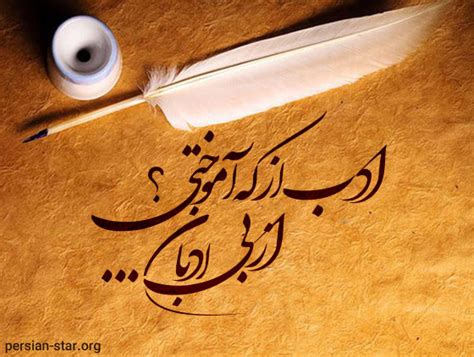 ادب از که آموختی؟
از بی ادبان...
persian-star.org